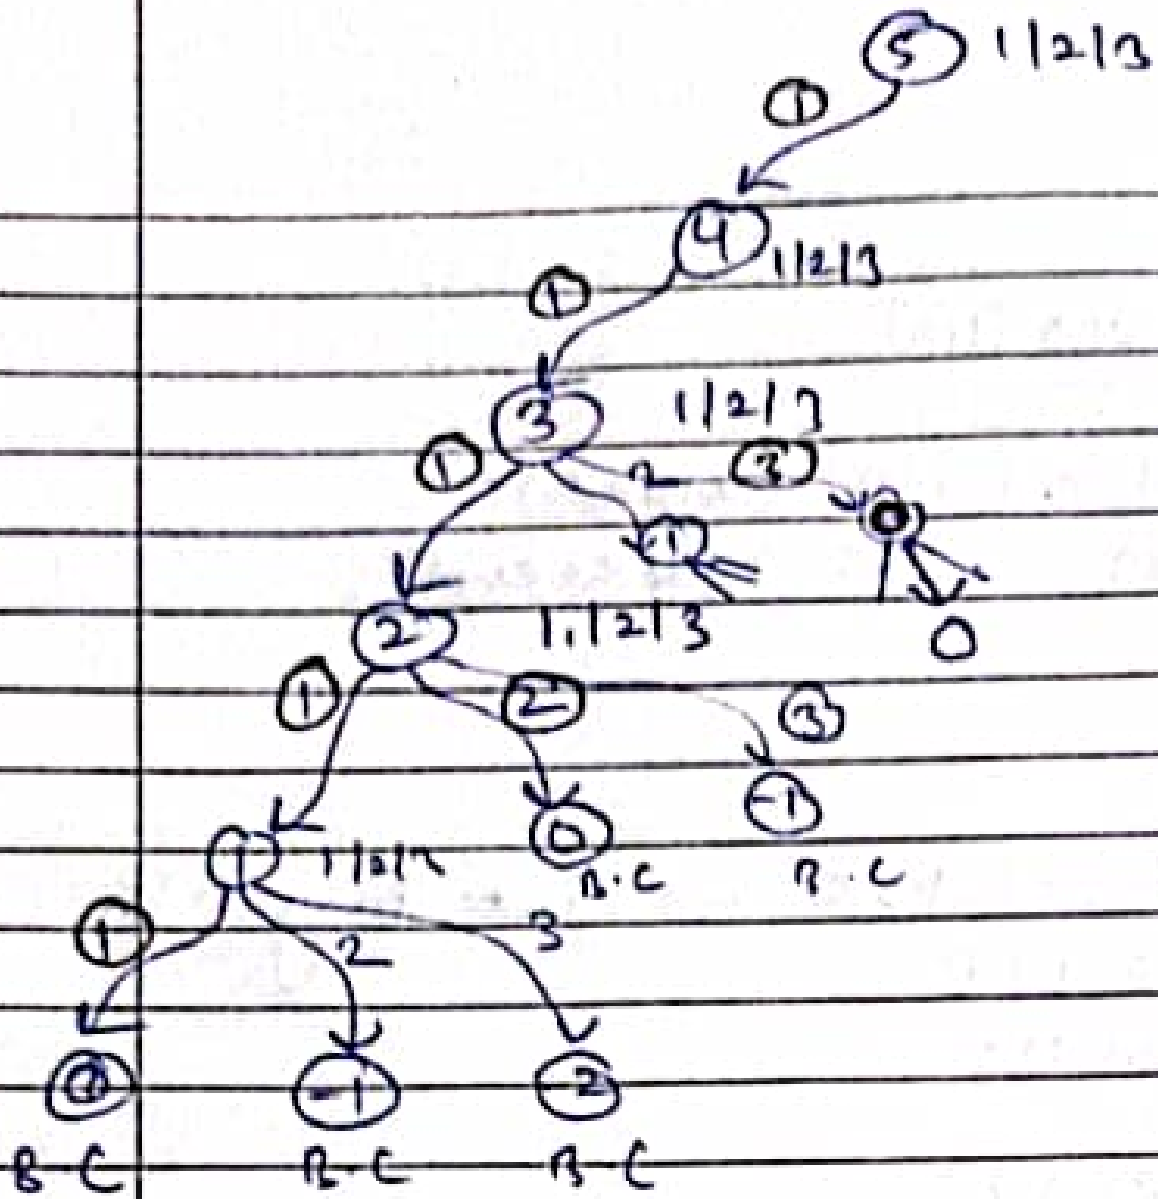 5 1/2/3
1
4 1/2/3
1
3 1/2/3
1 2 3
-1 0
2 1,/2/3 0
1 2 3
0 -1
1 1/2/3
B.C B.C
1 2 3
0 -1 -2
B-C B.C B-C